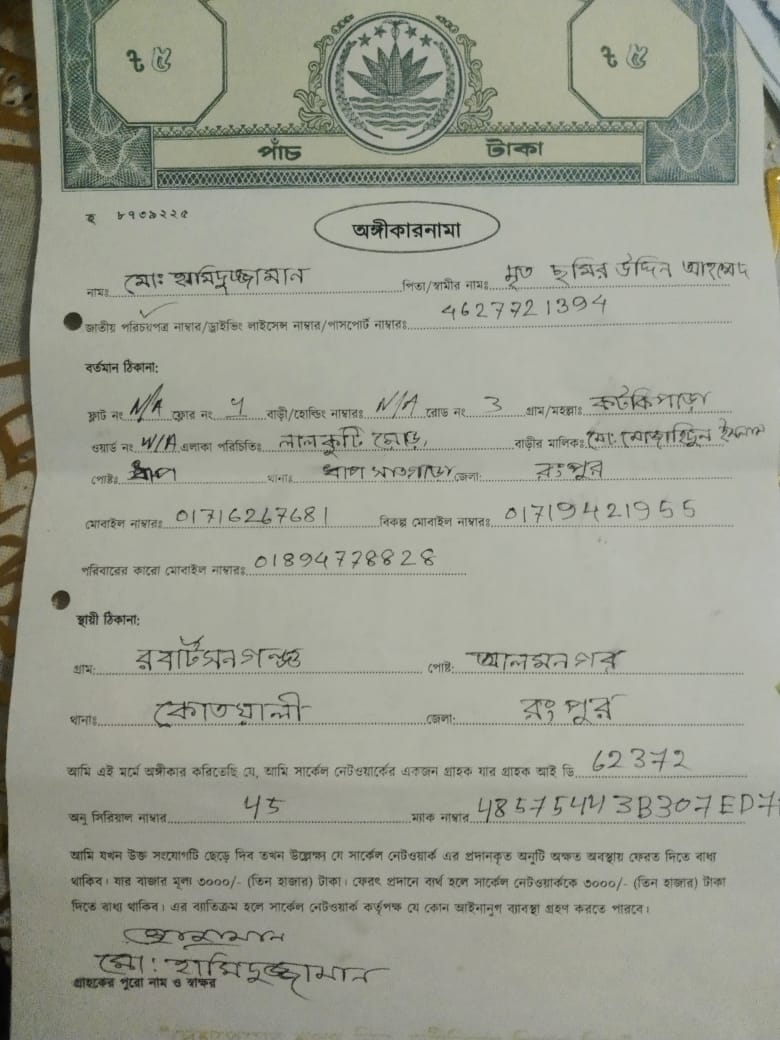 ৳ ৫ ৳ ৫
পাঁচ টাকা
হ ৮৭৩৯২২৫
অঙ্গীকারনামা
নামঃ মোঃ হামিদুজ্জামান পিতা/স্বামীর নামঃ মৃত ছমির উদ্দিন আহমেদ
জাতীয় পরিচয়পত্র নাম্বার/ড্রাইভিং লাইসেন্স নাম্বার/পাসপোর্ট নাম্বারঃ 4627721394
বর্তমান ঠিকানা:
ফ্লাট নং N/A ফ্লোর নং বাড়ী/হোল্ডিং নাম্বারঃ N/A রোড নং 3 গ্রাম/মহল্লাঃ কটকিপাড়া
ওয়ার্ড নং N/A এলাকা পরিচিতিঃ লালকুটি মোড়, বাড়ীর মালিকঃ মো: ইসলাম
পোষ্টঃ ধাপ থানাঃ ধাপ জেলা: রংপুর
মোবাইল নাম্বারঃ 01716267681 বিকল্প মোবাইল নাম্বারঃ 01719421955
পরিবারের কারো মোবাইল নাম্বারঃ 01894778828
স্থায়ী ঠিকানা:
গ্রাম: রবার্টসনগঞ্জ পোষ্ট: আলমনগর
থানাঃ কোতয়ালী জেলা: রংপুর
আমি এই মর্মে অঙ্গীকার করিতেছি যে, আমি সার্কেল নেটওয়ার্কের একজন গ্রাহক যার গ্রাহক আই ডি 62372
অনু সিরিয়াল নাম্বার 45 ম্যাক নাম্বার 48575443B307ED7
আমি যখন উক্ত সংযোগটি ছেড়ে দিব তখন উল্লেক্ষ্য যে সার্কেল নেটওয়ার্ক এর প্রদানকৃত অনুটি অক্ষত অবস্থায় ফেরত দিতে বাধ্য
থাকিব। যার বাজার মূল্য ৩০০০/- (তিন হাজার) টাকা। ফেরৎ প্রদানে ব্যর্থ হলে সার্কেল নেটওয়ার্ককে ৩০০০/- (তিন হাজার) টাকা
দিতে বাধ্য থাকিব। এর ব্যতিক্রম হলে সার্কেল নেটওয়ার্ক কর্তৃপক্ষ যে কোন আইনানুগ ব্যাবস্থা গ্রহণ করতে পারবে।
মো: হামিদুজ্জামান
গ্রাহকের পুরো নাম ও স্বাক্ষর